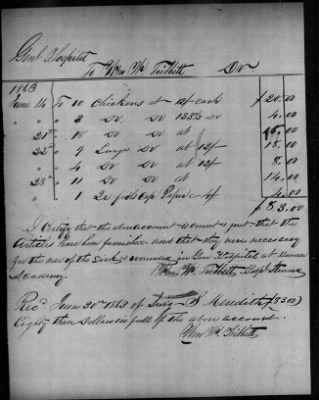 Genl Hospital
To Wm W Tribbett Dr
1863
June 14 To 10 Chickens at 12/ each $20.00
" " 8 Do Do Do 4.00
" 21st 18 Do Do at 15.00
" 22nd 9 Large Do at 12/ 18.00
" " 4 Do Do at 12/ 8.00
" 28th 11 Do Do at 14.00
" " 1 Paper 4.00
$83.00
I Certify that the above account is correct & just that the
Articles have been furnished and that they were necessary
for the use of the sick & wounded in Genl Hospital at
Academy.
Wm W. Tribbett Hospl
Recd June 30th 1863 of Surg B Meredith ($83.00)
Eighty three Dollars in full of the above account.
Wm W. Tribbett